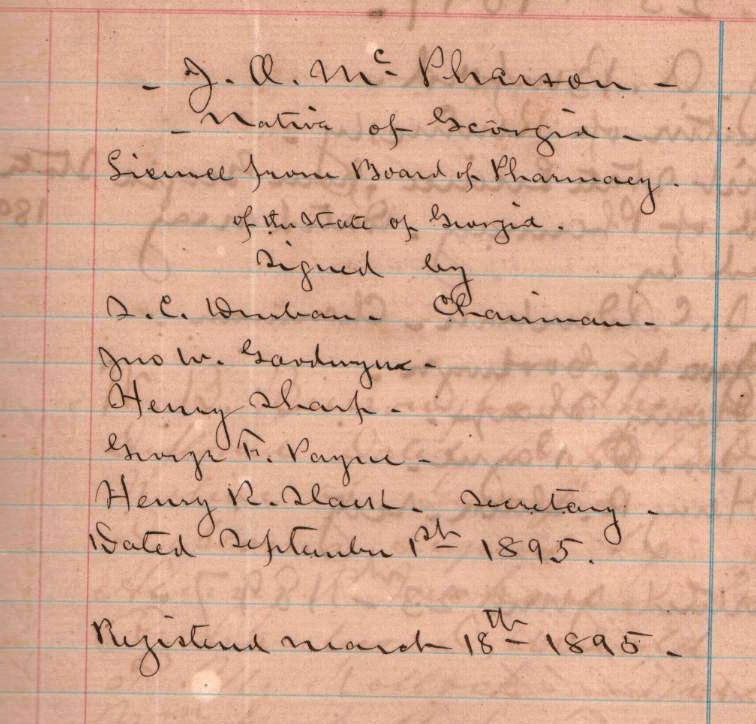 - J. A. Mc Pherson -
- Native of Georgia -
License from Board of Pharmacy.
of the State of Georgia.
Signed by
S. C. Durban. Chairman.
Jno W. Goodwyne -
Henry Sharp -
George F. Payne -
Henry R. Slack. Secretary.
Dated September 1st 1895.
Registered March 18th - 1895. -